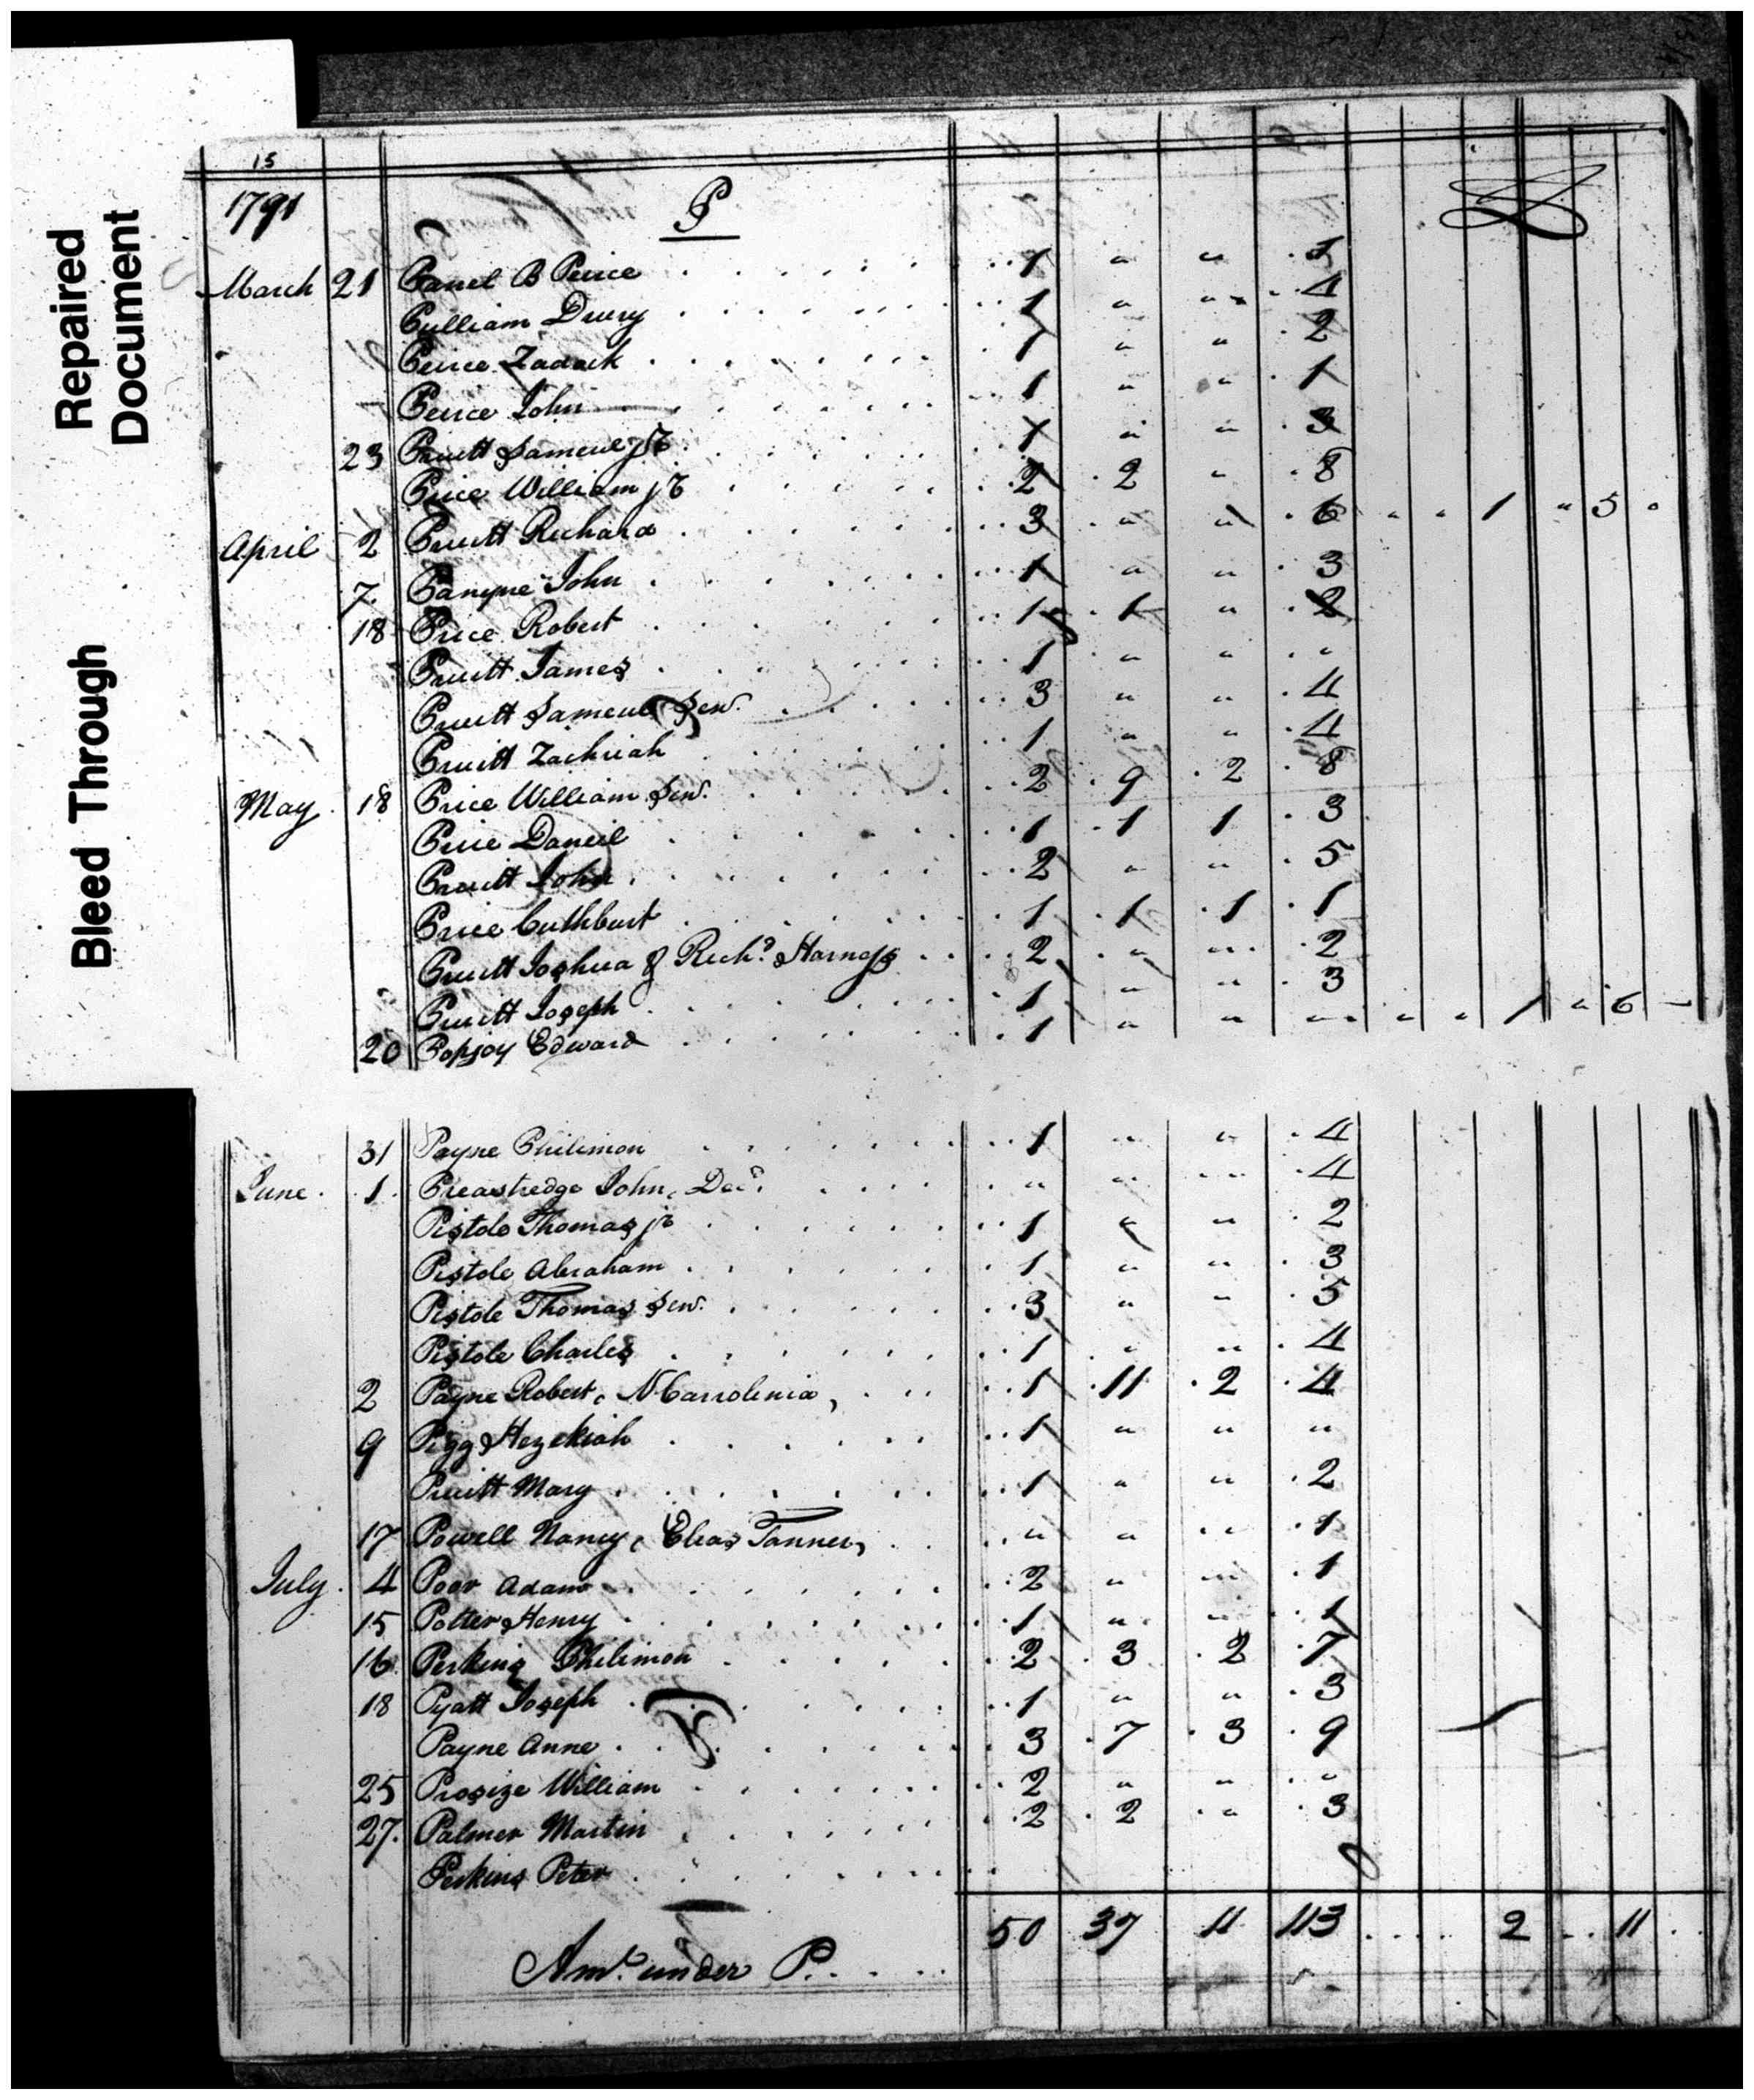 Repaired Document
Bleed Through
15
1791 P
March 21 Panel B Peirce 1 " " 1
Pulliam Drury 1 " " 4
Peirce Zadack 1 " " 2
Peirce John 1 " " 1
23 Pruitt Sameul jr 1 " " 3
Price William jr 2 2 " 8
April 2 Pruitt Richard 3 " " 6 " " 1 " 5 "
7 Panyne John 1 " " 3
18 Price Robert 1 1 " 2
Pruitt James 1 " " "
Pruitt Sameul Sen. 3 " " 4
Pruitt Zachriah 1 " " 4
May 18 Price William Sen. 2 9 2 8
Price Daneil 1 1 1 3
Pruitt John 2 " " 5
Price Cuthburt 1 1 1 1
Pruitt Joshua & Richd. Harness 2 " " 2
Pruitt Joseph 1 " " 3
20 Popjoy Edward 1 " " " " " 1 " 6 -
31 Payne Philimon 1 " " 4
June 1 Preastredge John, Decd. " " " 4
Pistole Thomas jr 1 " " 2
Pistole Abraham 1 " " 3
Pistole Thomas Sen. 3 " " 5
Pistole Charles 1 " " 4
2 Payne Robert, N Carrolinia, 1 11 2 4
9 Pigg Hezekiah 1 " " "
Pruitt Mary 1 " " 2
17 Powell Nancy, Elias Tanner, " " " 1
July 4 Poor Adam 2 " " 1
15 Potter Henry 1 " " 1
16 Perkins Philimon 2 3 2 7
18 Pyatt Joseph 1 " " 3
Payne Anne 3 7 3 9
25 Prosize William 2 " " "
27. Palmer Martin 2 2 " 3
Perkins Peter
50 37 11 113 2 11
Amt. under P.